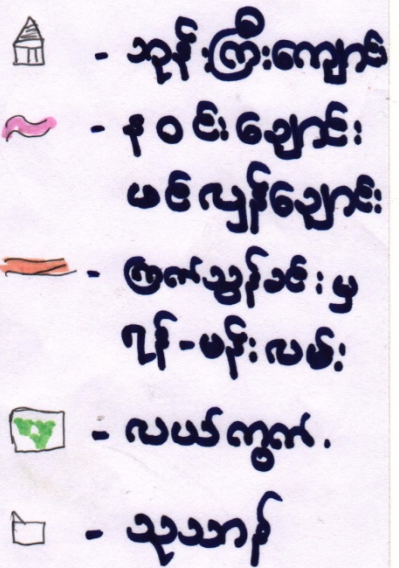 - ဘုန်းကြီးကျောင်း
- နဝင်းချောင်း
မင်လျှန်ချောင်း
- ကြက်သွန်ခင်းမှ
ရန်-မန်းလမ်း
- လယ်ကွက်.
- သုသာန်